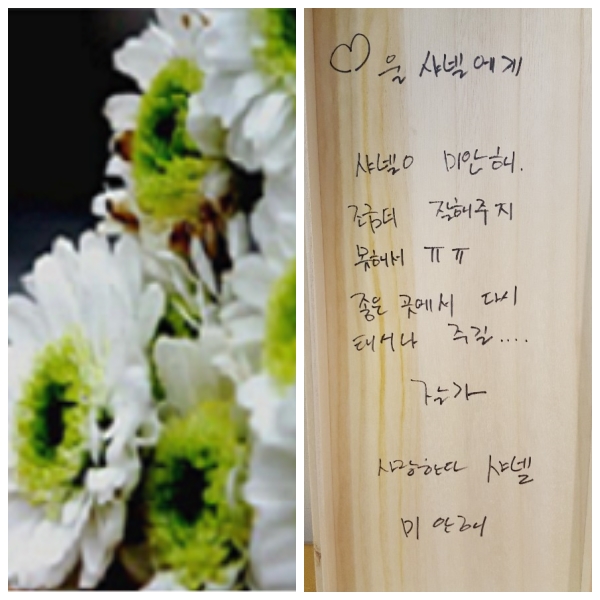 ♡울 샤넬에게
샤넬아 미안해.
조금더 잘해주지
못해서 ㅠㅠ
좋은 곳에서 다시
태어나 주길....
누가
사랑한다 샤넬
미안해